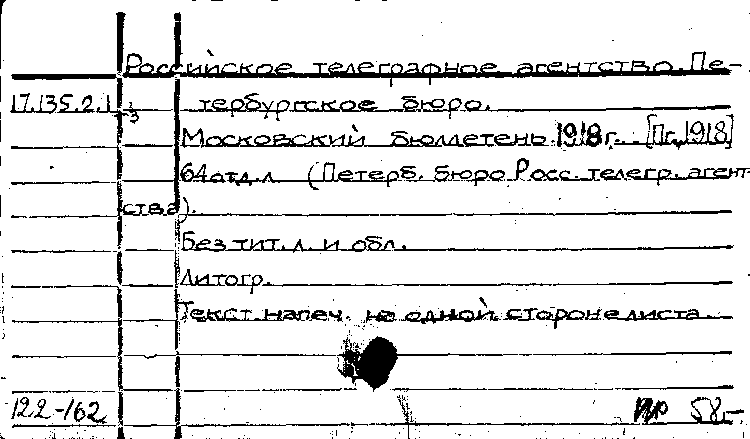 Российское телеграфное агентство. Пе-
17.135.2.1 тербургское бюро.
Московский бюллетень. 1918 г. [Пг., 1918]
64 отд. л. (Петерб. бюро Росс. телегр. агент-
ства).
Без тит. л. и обл.
Литогр.
Текст напеч. на одной стороне листа.
122-162 58-